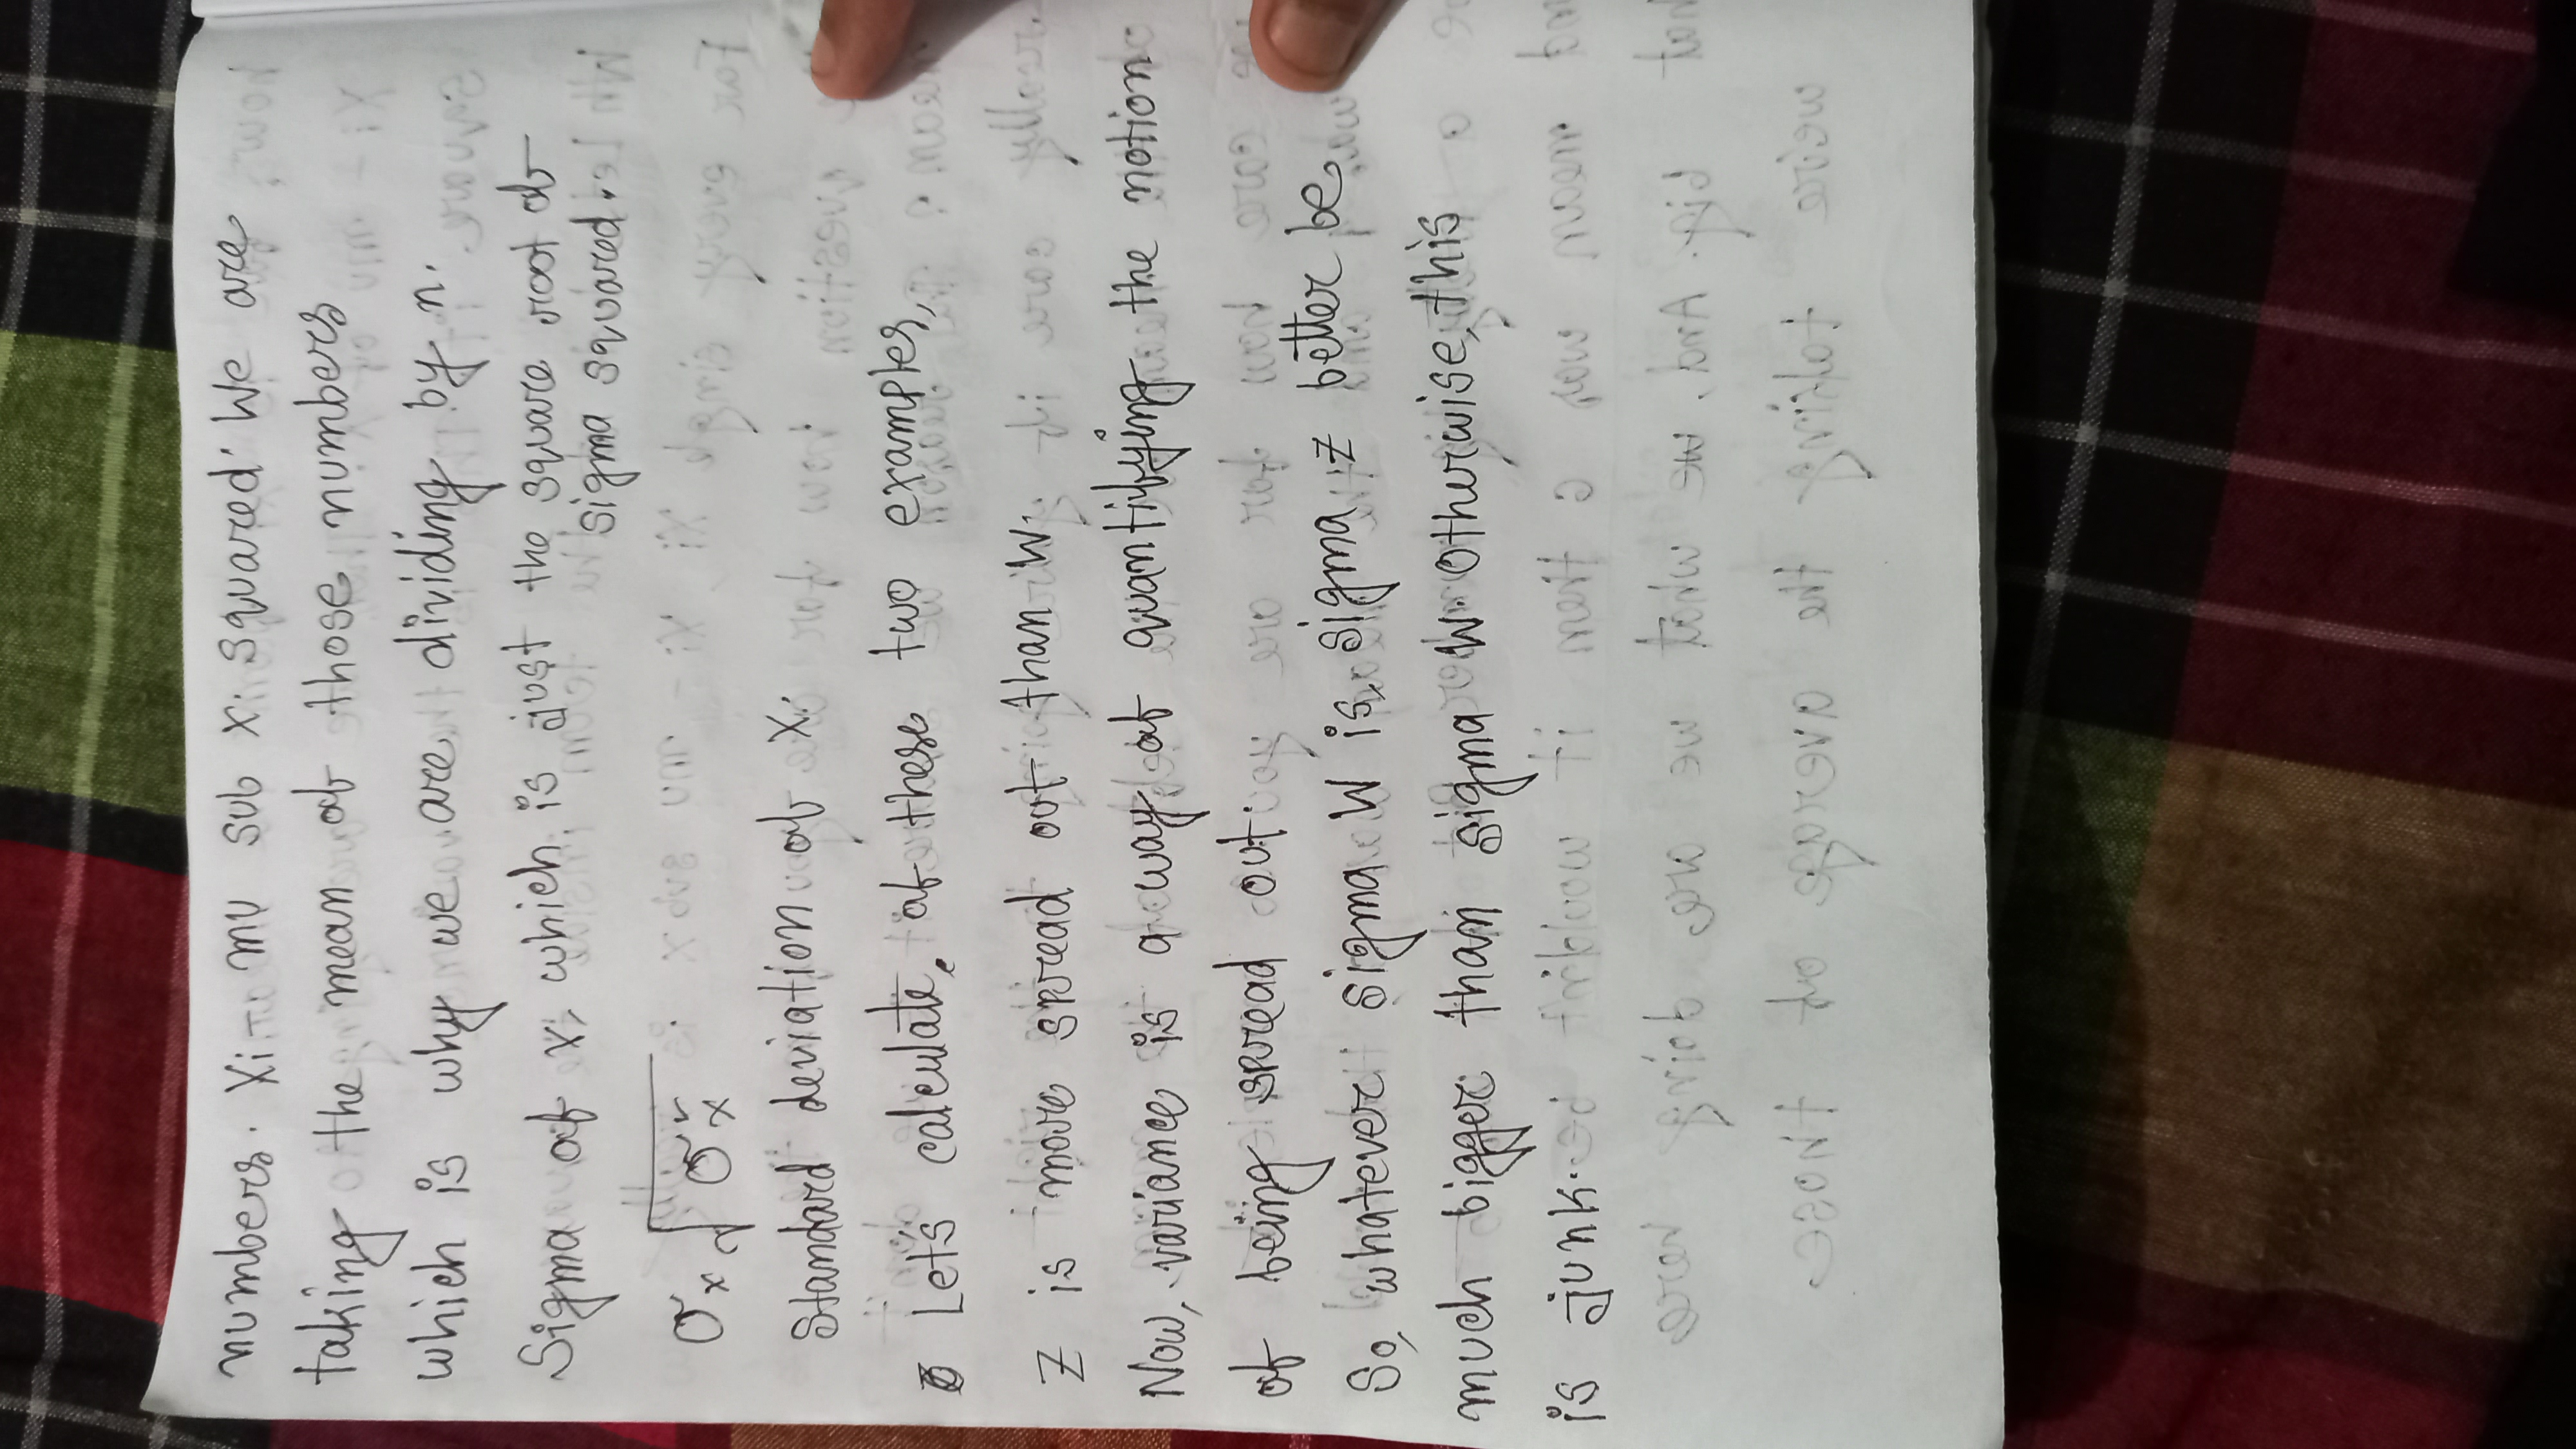 numbers. Xi - mu sub x. squared. We are
taking the mean of those numbers
which is why we are dividing by n.
Sigma of x, which is just the square root of
sigma squared.
σx √σ²x
Standard deviation of X.
Let's calculate. of these two examples,
Z is more spread out than W.
Now, variance is a way of quantifying the notion
of being spread out.
So, whatever sigma W is, sigma z better be
much bigger than sigma W. Otherwise, this
is junk.